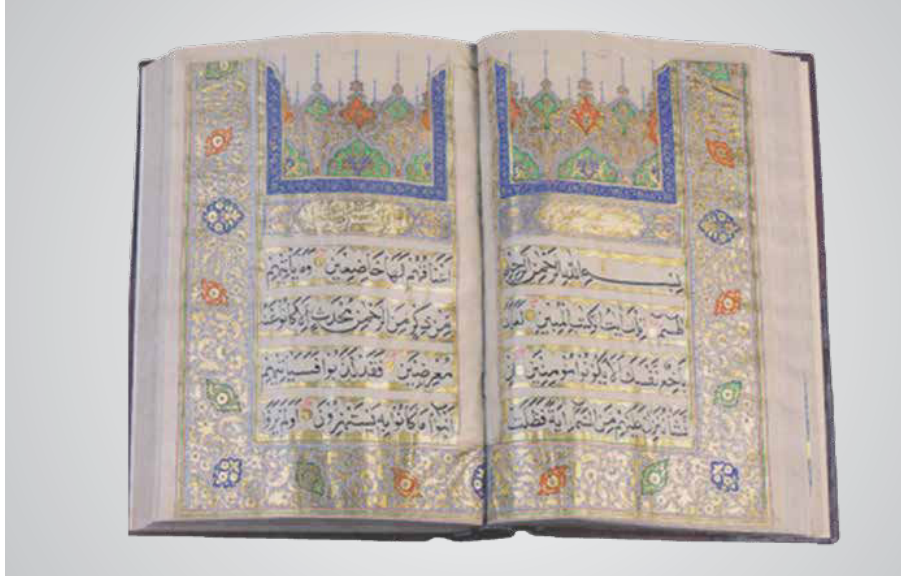 بِسْمِ اللّٰهِ الرَّحْمٰنِ الرَّحِيمِ
طسم تِلْكَ اٰيَاتُ الْكِتَابِ الْمُبِينِ لَعَلَّكَ
بَاخِعٌ نَفْسَكَ اَلَّا يَكُونُوا مُؤْمِنِينَ اِنْ
نَشَأْ نُنَزِّلْ عَلَيْهِمْ مِنَ السَّمَاءِ اٰيَةً فَظَلَّتْ
اَعْنَاقُهُمْ لَهَا خَاضِعِينَ وَمَا يَأْتِيهِمْ
مِنْ ذِكْرٍ مِنَ الرَّحْمٰنِ مُحْدَثٍ اِلَّا كَانُوا عَنْهُ
مُعْرِضِينَ فَقَدْ كَذَّبُوا فَسَيَأْتِيهِمْ
اَنْبَاءُ مَا كَانُوا بِهِ يَسْتَهْزِؤُنَ اَوَلَمْ يَرَوْا